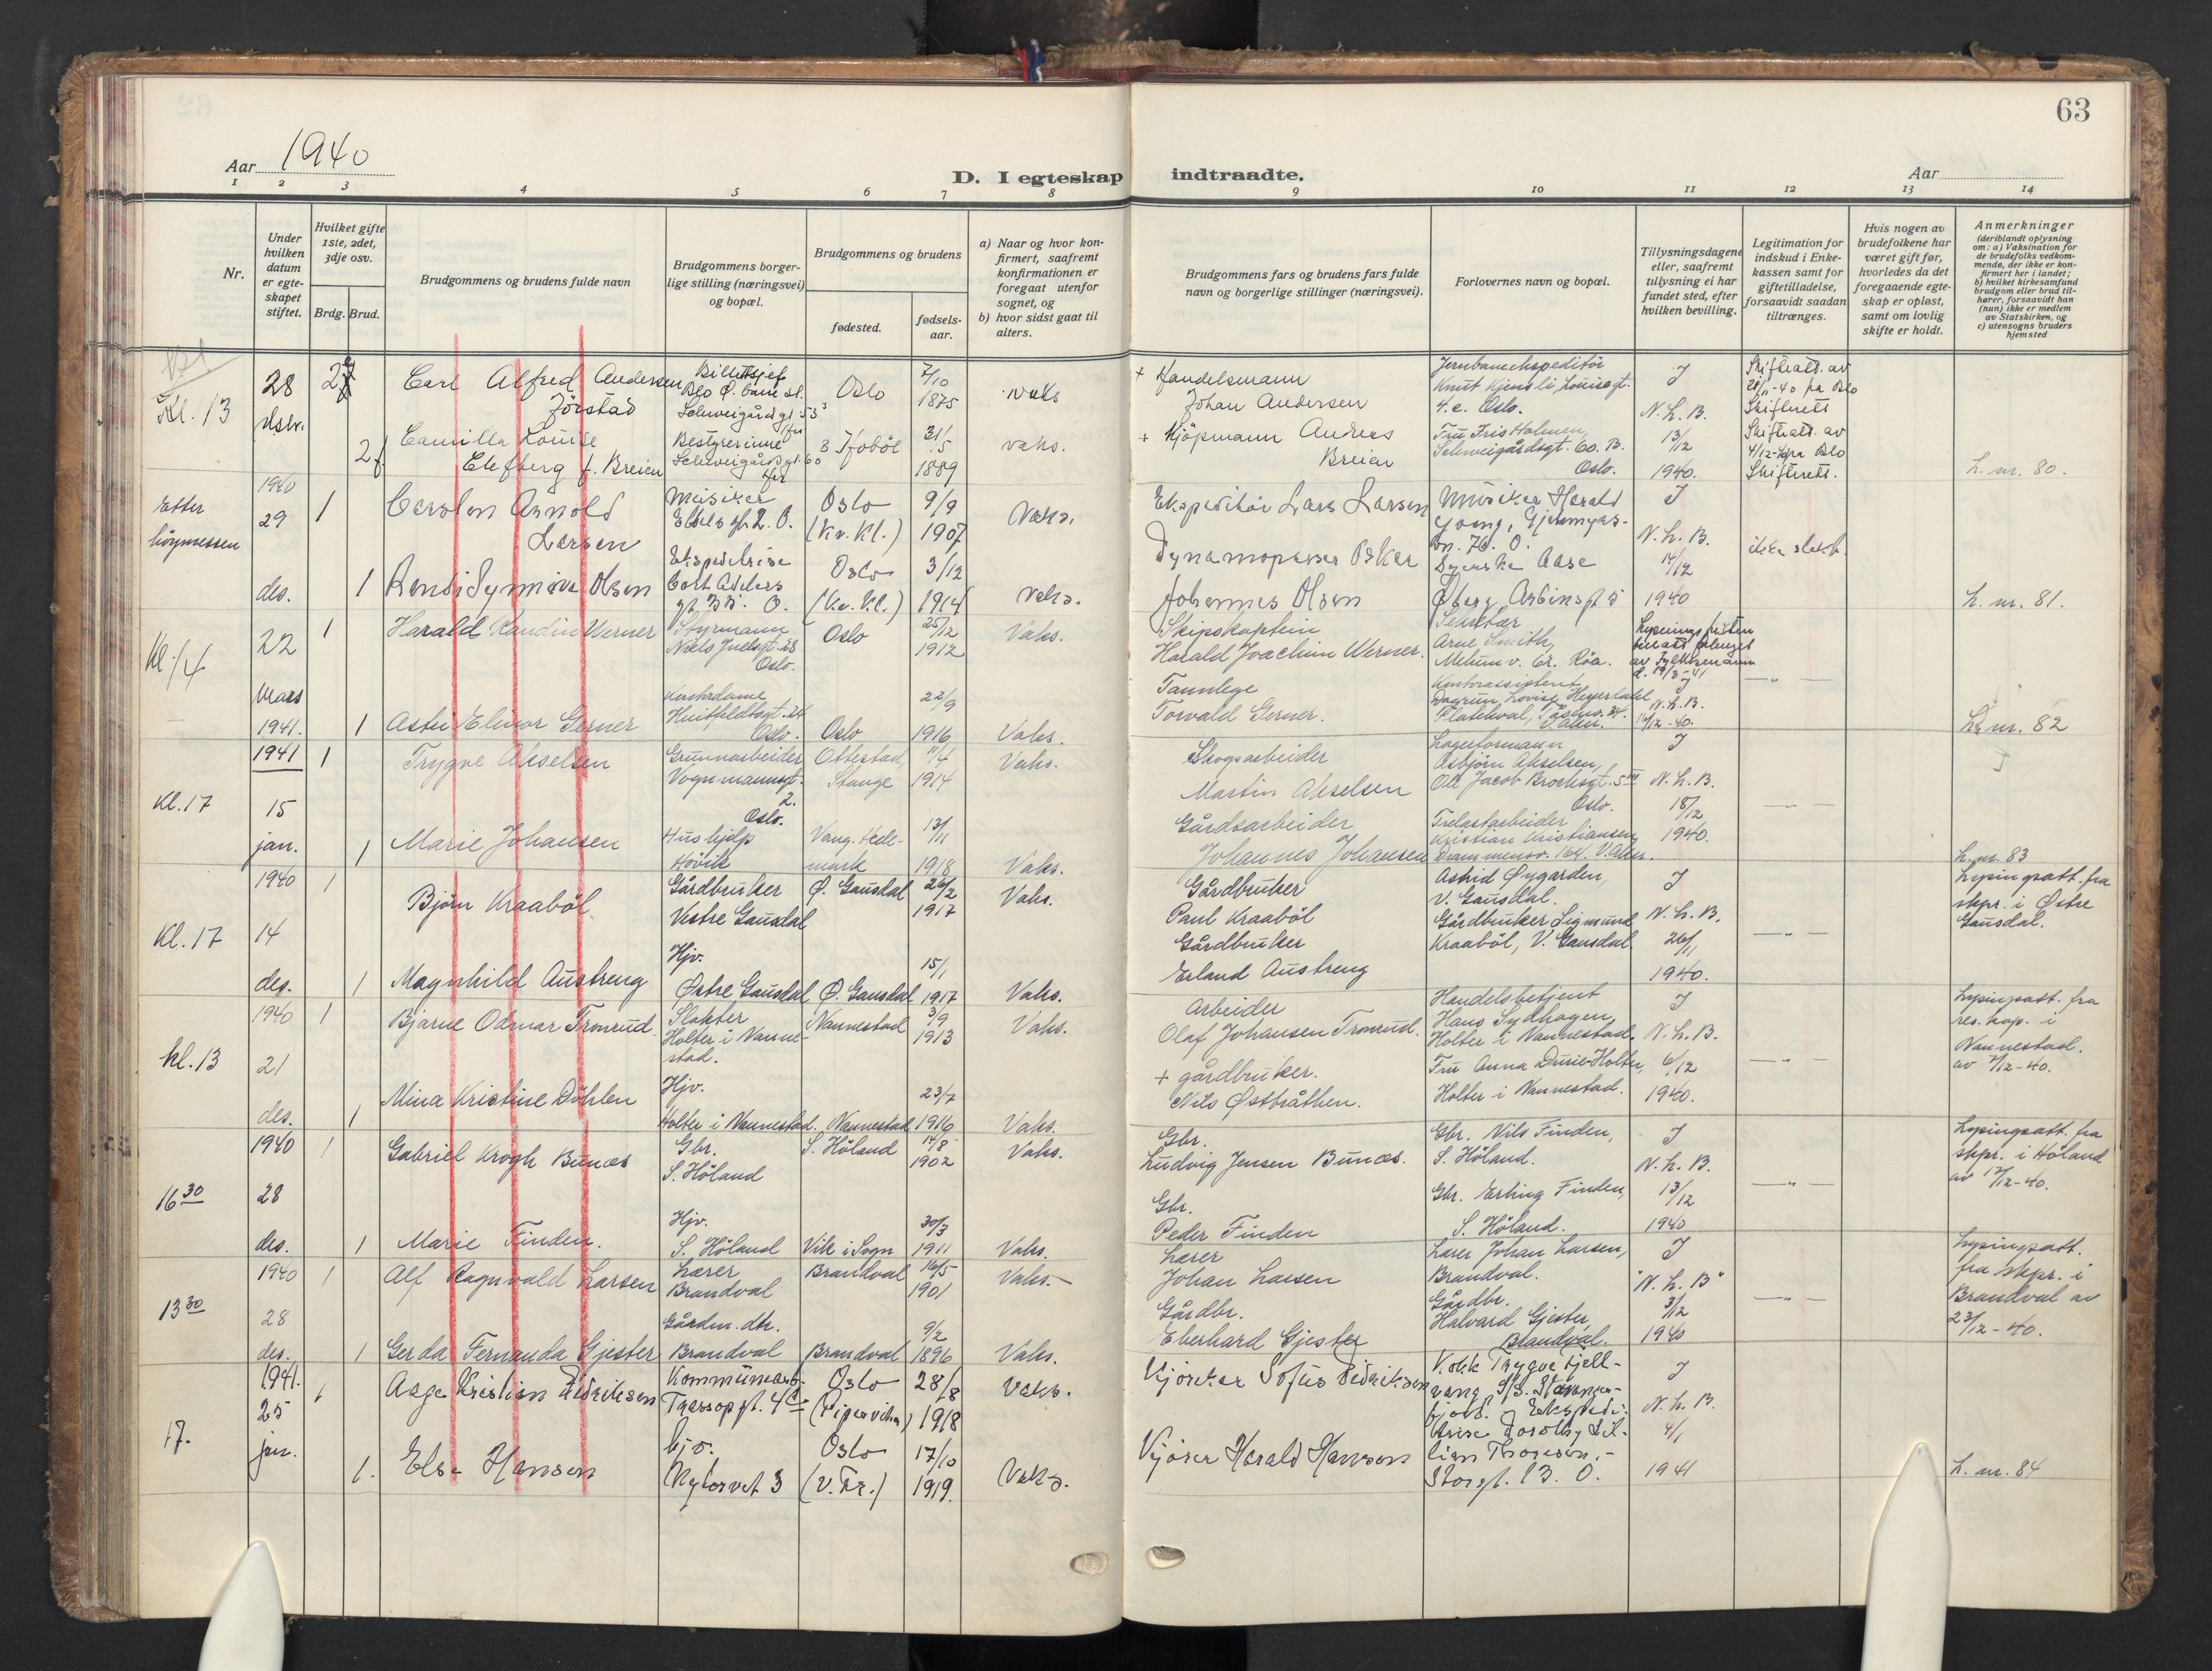 63
Aar 1940
D. I egteskap indtraadte.
Aar
1 2 3 4 5 6 7 8 9 10 11 12 13 14
Nr.
Under hvilken datum er egte-skapet stiftet.
Hvilket gifte 1ste, 2det, 3dje osv.
Brdg. Brud.
Brudgommens og brudens fulde navn
Brudgommens borger-lige stilling (næringsvei) og bopæl.
Brudgommens og brudens
fødested.
fødsels-aar.
a) Naar og hvor kon-firmert, saafremt konfirmationen er foregaat utenfor sognet, og
b) hvor sidst gaat til alters.
Brudgommens fars og brudens fars fulde navn og borgerlige stillinger (næringsvei).
Forlovernes navn og bopæl.
Tillysningsdagene eller, saafremt tillysning ei har fundet sted, efter hvilken bevilling.
Legitimation for indskud i Enke-kassen samt for giftetilladelse, forsaavidt saadan tiltrænges.
Hvis nogen av brudefolkene har været gift før, hvorledes da det foregaaende egte-skap er opløst, samt om lovlig skifte er holdt.
Anmerkninger
(deriblandt oplysning om: a) Vaksination for de brudefolks vedkom-mende, der ikke er kon-firmert her i landet; b) hvilket kirkesamfund brudgom eller brud til-hører, forsaavidt han (hun) ikke er medlem av Statskirken, og c) utensogns bruders hjemsted
Kl. 13 28 des. 2f Carl Alfred Andersen Jörstad Billettsjef Oslo Ø. bane st. Schweigårdsgt. 53 Oslo 7/10 1875 vaks + Handelsmann Johan Andersen Jernbaneekspeditör Knut Kjensli, Louisegt. 4.c. Oslo. J N.L.B. 13/12 1940. Skifteatt. av 28/11-40 fra Oslo Skifterett
2f Camilla Louise Elefberg f. Breien Bestyrerinne Schweigårdsgt. 60 31/5 1889 vaks. + Kjöpmann Anders Breien Fru Iris Holmen, Schweigårdsgt. 60. B. Oslo. Skifteatt. av 4/12-40 fra Oslo Skifterett. L. nr. 80.
Etter höymessen 1940 29 des. 1 Carsten Arnold Larsen Musiker O. Oslo (Kv. Kl.) 9/9 1907 Vaks. Ekspeditör Lars Larsen Musiker Harald J N.L.B. 14/12 1940
1 Olsen Ekspeditrise Cort Adelers gt. O. Oslo (Kv. Kl.) 3/12 1914 Vaks. Dynamopasser Oskar Johannes Olsen Aase Øberg, Arbinsgt 5 L. nr. 81.
Kl. 14 22 mars 1941. 1 Harald Randin Werner Styrmann Niels Juelsgt. 28 Oslo. Oslo 25/12 1912 Vaks. Skipskaptein Harald Joachim Werner. Sekretær Arne Smith, Melumv. 62. Röa.
1 Astri Elinor Gerner Kontordame Huitfeldtsgt. 24 Oslo. Oslo 22/9 1916 Vaks. Tannlege Torvald Gerner. Kontorassistent Dagrun Lovise Heyerdahl J N.L.B. 16/12-40. — " — L. nr. 82
Kl. 17 1941 15 jan. 1 Trygve Akselsen Grunnarbeider Vognmannsgt. 2. Oslo. Ottestad, Stange 11/4 1914 Vaks. Skogsarbeider Martin Akselsen Lagerformann Asbjörn Akselsen, Ole Jacob Brochsgt. 5 III Oslo. J N.L.B. 18/12 1940. — " —
1 Marie Johansen Hushjelp Hövik Vang. Hede-mark 13/11 1918 Vaks. Gårdsarbeider Johannes Johansen Trelastarbeider Kristian Kristiansen Drammensv. 164. V. Aker. L. nr. 83
Kl. 17 1940 14 des. 1 Björn Kraaböl. Gårdbruker Vestre Gausdal Ø. Gausdal 26/2 1917 Vaks. Gårdbruker Paul Kraaböl Astrid Öygarden, V. Gausdal. J N.L.B. 26/11 1940. — " — Lysingsatt. fra skpr. i Østre Gausdal.
1 Magnhild Austreng Hjv. Østre Gausdal Ø. Gausdal 15/1 1917 Vaks. Gårdbruker Erland Austreng Gårdbruker Sigmund Kraaböl, V. Gausdal
Kl. 13 1940 21 des. 1 Bjarne Odmar Tromrud. Slakter Holter i Nanne-stad. Nannestad 3/9 1913 Vaks. Arbeider Olaf Johansen Tromrud. Handelsbetjent Hans Sydhagen, Holter i Nannestad. J N.L.B. 6/12 1940. — " — Lysingsatt. fra res. kap. i Nannestad. av 7/12-40.
1 Mina Kristine Döhlen Hjv. Holter i Nannestad. Nannestad 23/7 1916 Vaks. + gårdbruker. Nils Østbråthen. Fru Anna Durie-Holter, Holter i Nannestad.
16 30 1940 28 des. 1 Gabriel Krogh Bunæs Gbr. S. Höland S. Höland 14/8 1902 Vaks. Gbr. Ludvig Jensen Bunæs. Gbr. Nils Finden, S. Höland. J N.L.B. 13/12 1940 — " — Lysingsatt. fra skpr. i Höland av 17/12-40.
1 Marie Finden. Hjv. S. Höland Vik i Sogn 30/3 1911 Vaks. Gbr. Peder Finden Gbr. Erling Finden, S. Höland.
13 30 1940 28 des. 1 Alf Ragnvald Larsen Lærer Brandval Brandval 16/5 1901 Vaks. Lærer Johan Larsen Lærer Johan Larsen, Brandval. J "N.L.B" 3/12 1940 — " — Lysingsatt. fra skpr. i Brandval av 23/12-40.
1 Gerda Fernanda Gjester Gårdm. dtr. Brandval Brandval 9/2 1896 Vaks. Gårdbr. Eberhard Gjester Gårdbr. Halvard Gjester, Brandval.
17. 1941. 25 jan. 1 Aage Kristian Didriksen Kommunearb. Oslo (Pipervika) 28/8 1918 Vaks. Kjörekar Sofus Didriksen Kokk Trygve Fjell-vang, S/S. Stavanger-fjord. J N.L.B. 4/1 1941
1. Else Hansen Hjv. Nytorvet 3 Oslo (V. Fr.) 17/10 1919. Vaks. Kjörer Harald Hansen Ekspedi-trise Dorothy Lil-lian Thoresen, Storgt. 13. O. L. nr. 84